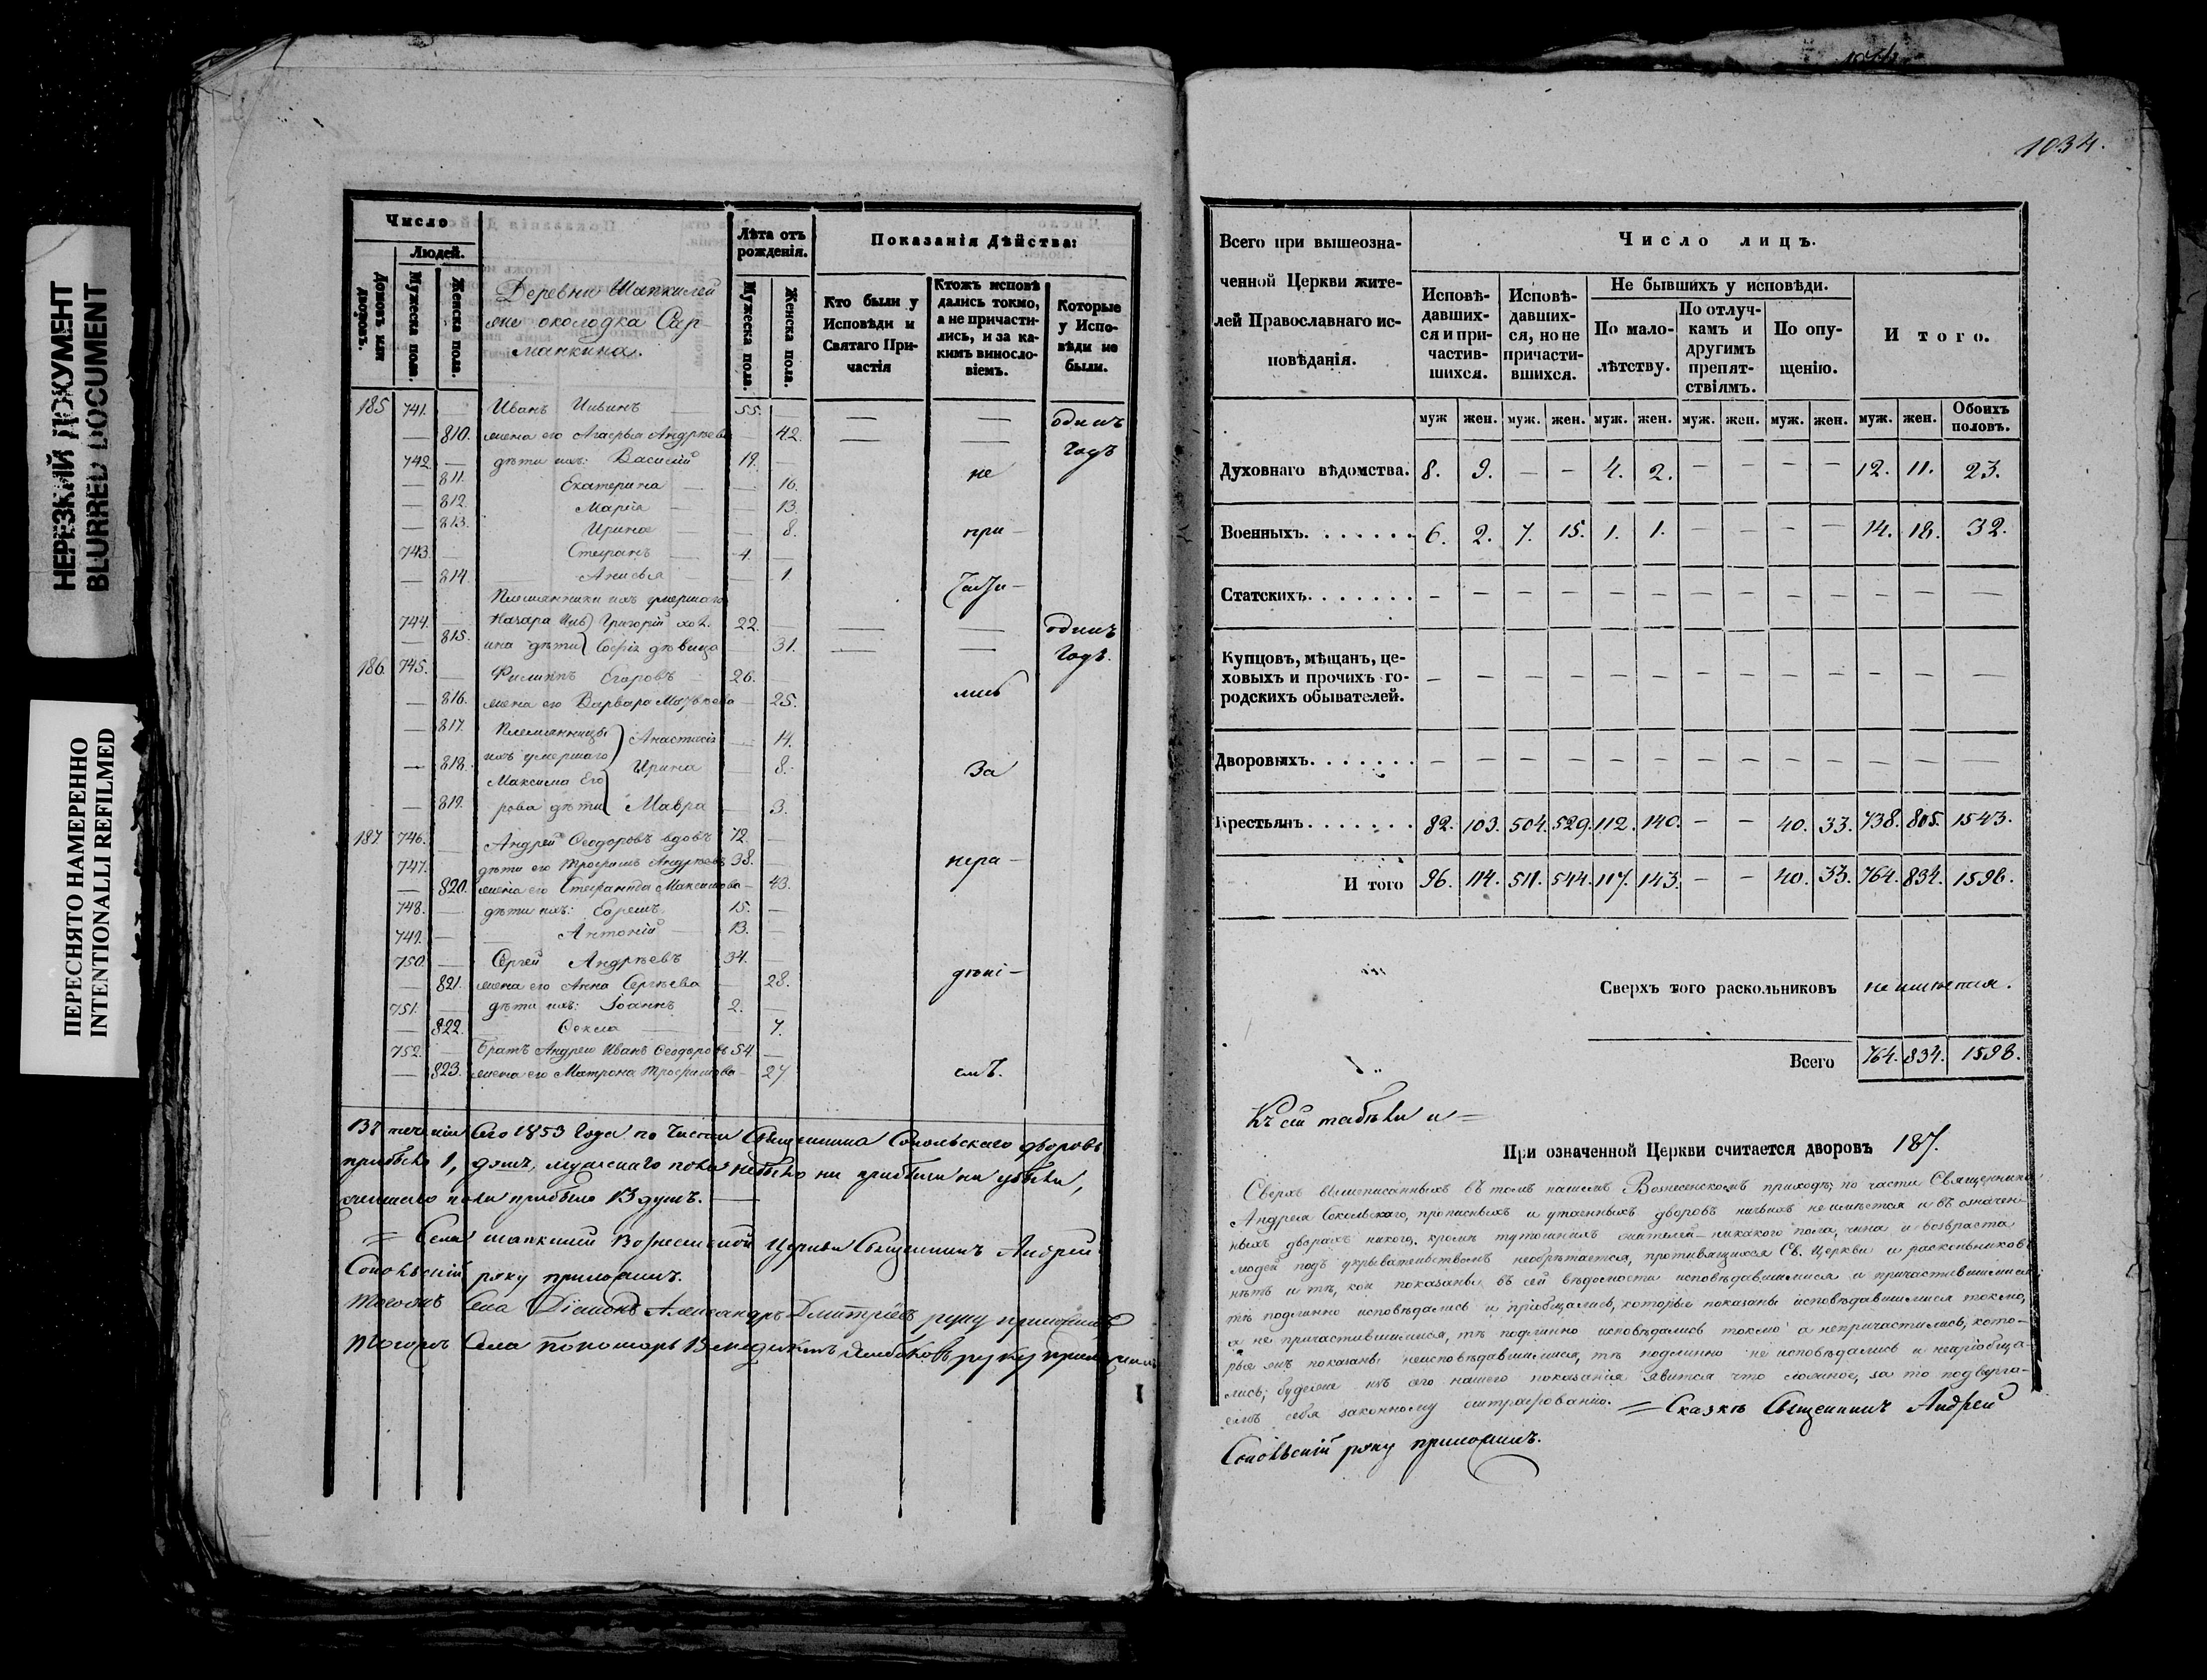 НЕРЕЗКИЙ ДОКУМЕНТ
BLURRED DOCUMENT
ПЕРЕСНЯТО НАМЕРЕННО
INTENTIONALLI REFILMED
Число
Людей.
Домовъ или дворовъ.
Мужеска пола.
Женска пола.
Деревни
околодка Сар-
манкина.
Лѣта отъ рожденія.
Мужеска пола.
Женска пола.
Показанія Дѣйства:
Кто были у Исповѣди и Святаго Причастія
Ктожъ исповѣдались токмо, а не причастились, и за какимъ винословіемъ.
Которые у Исповѣди не были.
185 741. — Иванъ Ильинъ 55. — — — одинъ
— 810. жена его Агафья Андрѣева — 42. — — годъ
742. — дѣти ихъ: Василій 19. —
— 811. Екатерина — 16. не
— 812. Марія — 13.
— 813. Ирина — 8. при-
743. — Стефанъ 4. —
— 814. Анисья — 1. части-
Племянники ихъ умершаго
744. — Назара Иль) Григорій хол. 22. — — — одинъ
815. ина дѣти) Софія дѣвица 31. — — годъ.
186. 745. — Филиппъ Егоровъ 26. —
— 816. жена его Варвара — 25. лись
— 817. Племянницы) Анастасія — 14.
— 818. ихъ умершаго) Ирина — 8. за
Максима Его
— 819. рова дѣти) Мавра — 3.
187. 746. — Андрей Ѳеодоровъ вдовъ 72. —
747. — дѣти его Трофимъ Андрѣевъ 38. — нера-
— 820. жена его Стефанида Максимова — 43.
748. — дѣти ихъ: Ефремъ 15. —
749. — Антоній 13. —
750. — Сергей Андрѣевъ 34. —
— 821. жена его Анна Сергѣева — 28. дѣні-
751. — дѣти ихъ: Іоаннъ 2. —
— 822. Ѳекла — 7.
752. — Братъ Андрея Иванъ Ѳеодоровъ 54. —
— 823. жена его Матрона Трофимова — 27 емъ.
Въ теченіи сего 1853 года по части Священника Сокольскаго дворовъ
прибыло 1, душъ, мужескаго пола небыло ни прибыли ни убыли,
женскаго пола прибыло 13 душъ. —
= Села Вознесенской Церкви Священникъ Андрей
Сокольскій руку приложилъ.
Тогожъ Села Діаконъ Александръ Дмитріевъ руку приложилъ
Тогожъ Села Пономарь руку приложилъ
1034.
Всего при вышеозначенной Церкви жителей Православнаго исповѣданія.
Число лицъ.
Исповѣдавшихся и причастившихся.
Исповѣдавшихся, но не причастившихся.
Не бывшихъ у исповѣди.
По малолѣтству.
По отлучкамъ и другимъ препятствіямъ.
По опущенію.
Итого.
муж жен. муж. жен. муж. жен. муж. жен. муж. жен. муж. жен. Обоихъ половъ.
Духовнаго вѣдомства. 8. 9. — — 4. 2. — — — — 12. 11. 23.
Военныхъ. 6. 2. 7. 15. 1. 1. — — — — 14. 18. 32.
Статскихъ. — — — — — — — — — — — — —
Купцовъ, мѣщанъ, цеховыхъ и прочихъ городскихъ обывателей. — — — — — — — — — — — — —
Дворовыхъ. — — — — — — — — — — — — —
Крестьянъ. 82. 103. 504. 529. 112. 140. — — 40. 33. 738. 805. 1543.
И того 96. 114. 511. 544. 117. 143. — — 40. 33. 764. 834. 1598.
Сверхъ того раскольниковъ не имѣется.
Всего 764. 834. 1598.
Къ сей табѣли и =
При означенной Церкви считается дворовъ 187.
Сверхъ вышеписанныхъ въ томъ нашемъ Вознесенскомъ приходѣ, по части Священника
Андрея Сокольскаго, прописныхъ и утаенныхъ дворовъ никакихъ не имѣется и въ означен-
ныхъ дворахъ никого, кромѣ тутошнихъ жителей — никакого пола, чина и возраста
людей подъ укрывательствомъ необрѣтается, противящихся Св. Церкви и раскольниковъ
нѣтъ и тѣ, кои показаны въ сей вѣдомости исповѣдавшимися и причастившимися;
тѣ подлинно исповѣдались и пріобщались, которые показаны исповѣдавшимися токмо,
а не причастившимися, тѣ подлинно исповѣдались токмо а непричастились, кото-
рые жъ показаны неисповѣдавшимися, тѣ подлинно не исповѣдались и непріобща-
лись; буде же изъ сего нашего показанія явится что ложное, за то подверга-
емъ себя законному оштрафованію. = Сказкѣ Священникъ Андрей
Сокольскій руку приложилъ.